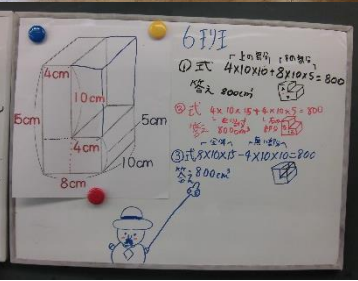 4cm
10cm
15cm
5cm
4cm
10cm
8cm
6班
上の部分 下の部分
①式 4×10×10+8×10×5=800
答え 800cm³
②式 4×10×15+4×10×5=800
答え 800cm³
全体
③式 8×10×15-4×10×10=800
答え 800cm³